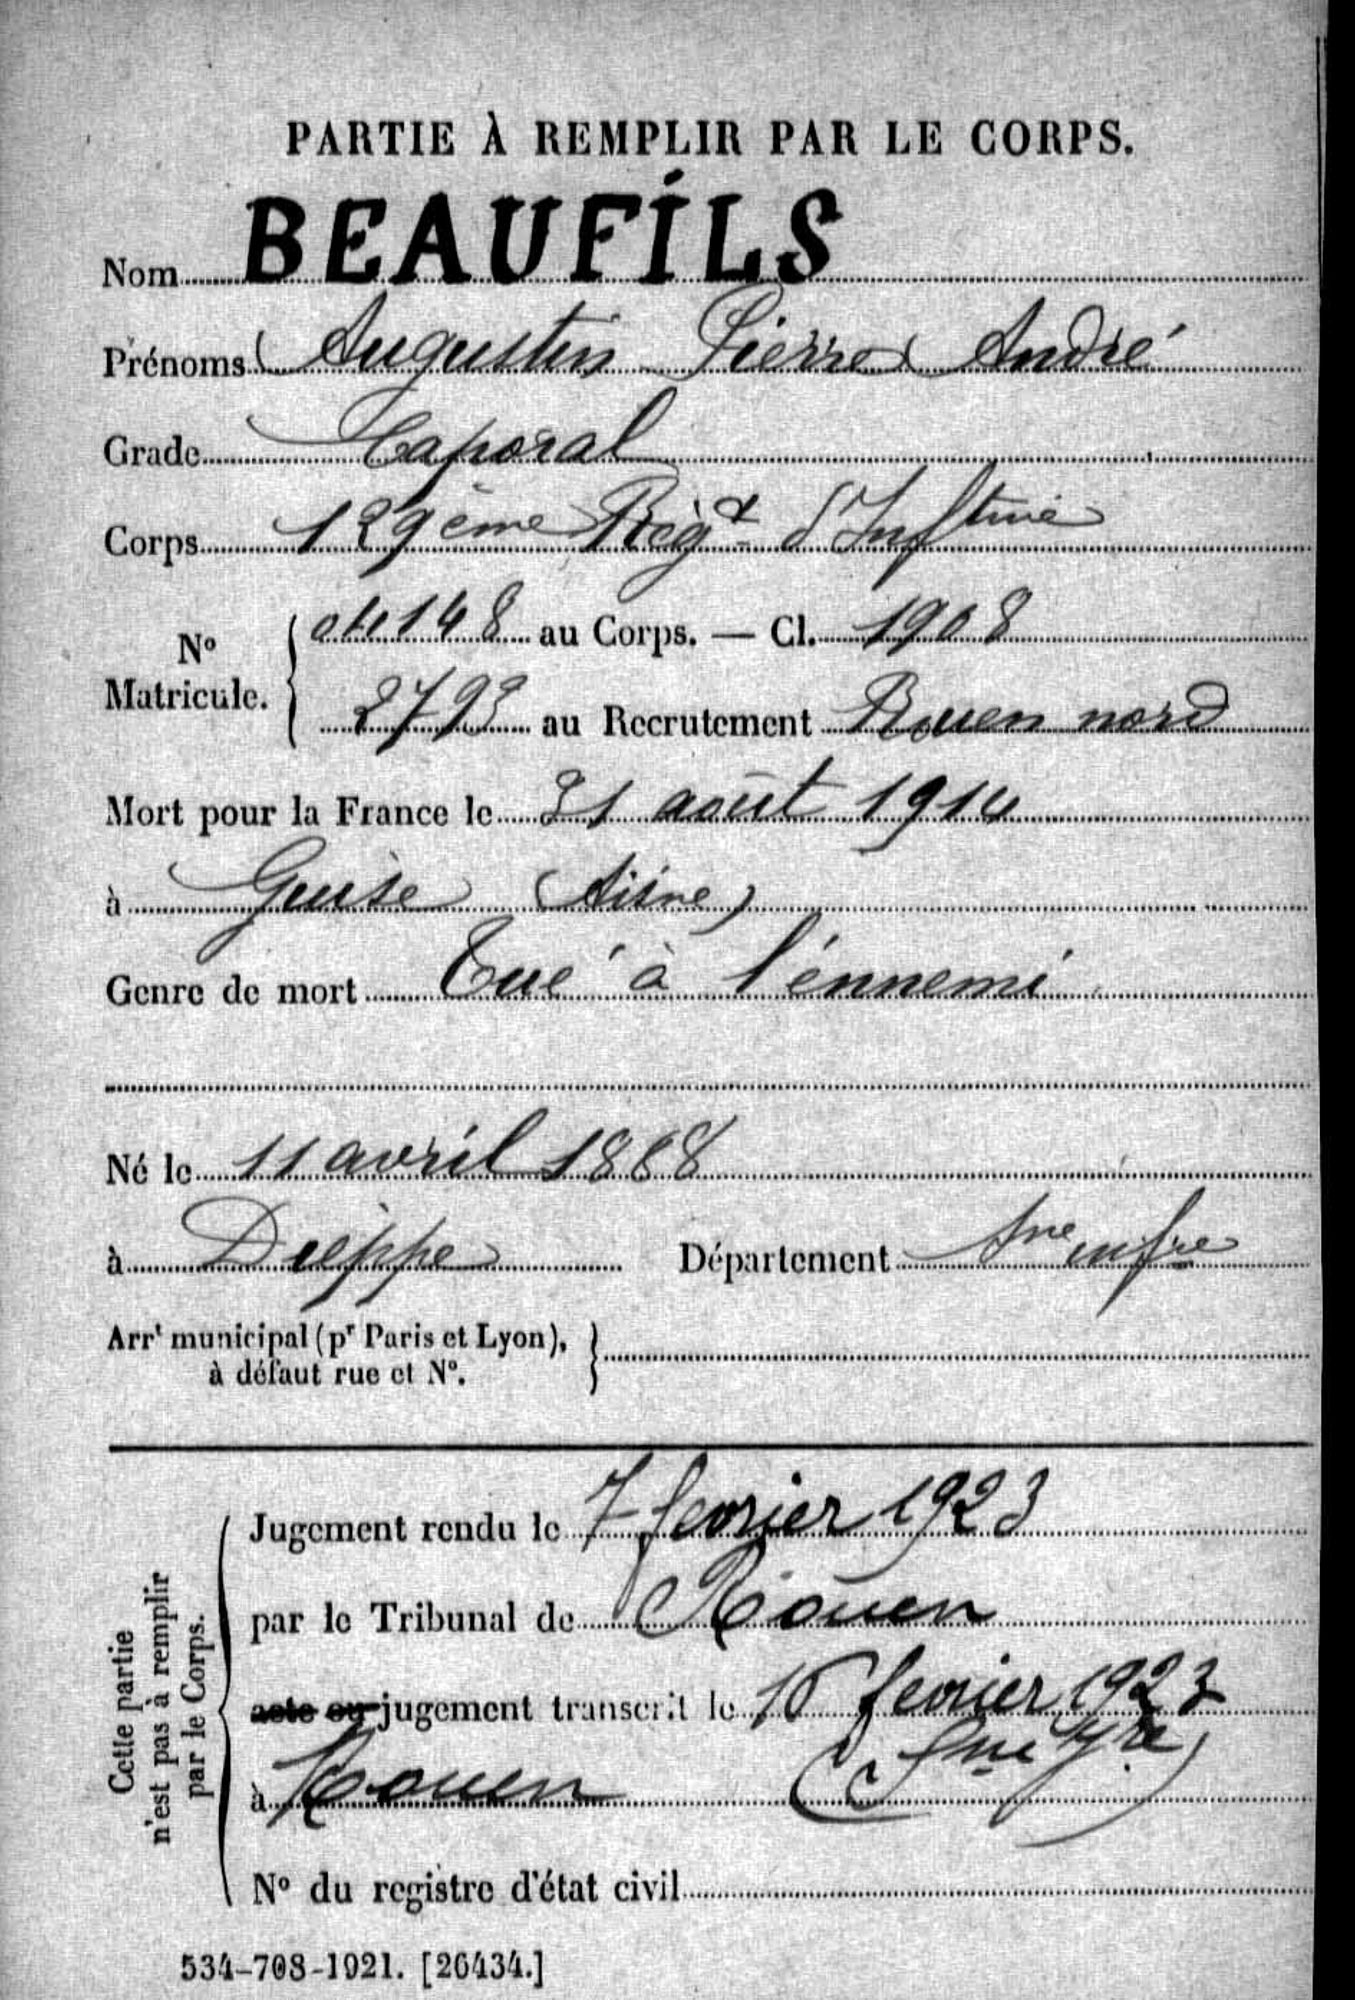 PARTIE À REMPLIR PAR LE CORPS.
Nom BEAUFILS
Prénoms Augustin Pierre André
Grade Caporal
Corps 129ème Régt d'Inftrie
No Matricule. 04148 au Corps. — Cl. 1908
2793 au Recrutement Rouen nord
Mort pour la France le 31 août 1914
à Guise (Aisne)
Genre de mort Tué à l'énnemi
Né le 11 avril 1888
à Dieppe Département Sne infre
Arrt municipal (pr Paris et Lyon),
à défaut rue et No.
Jugement rendu le 7 fevrier 1923
par le Tribunal de Rouen
acte ou jugement transcrit le fevrier 1923
à Rouen (Sne Ifre)
No du registre d'état civil
Cette partie
n'est pas à remplir
par le Corps.
534-708-1921. [26434.]